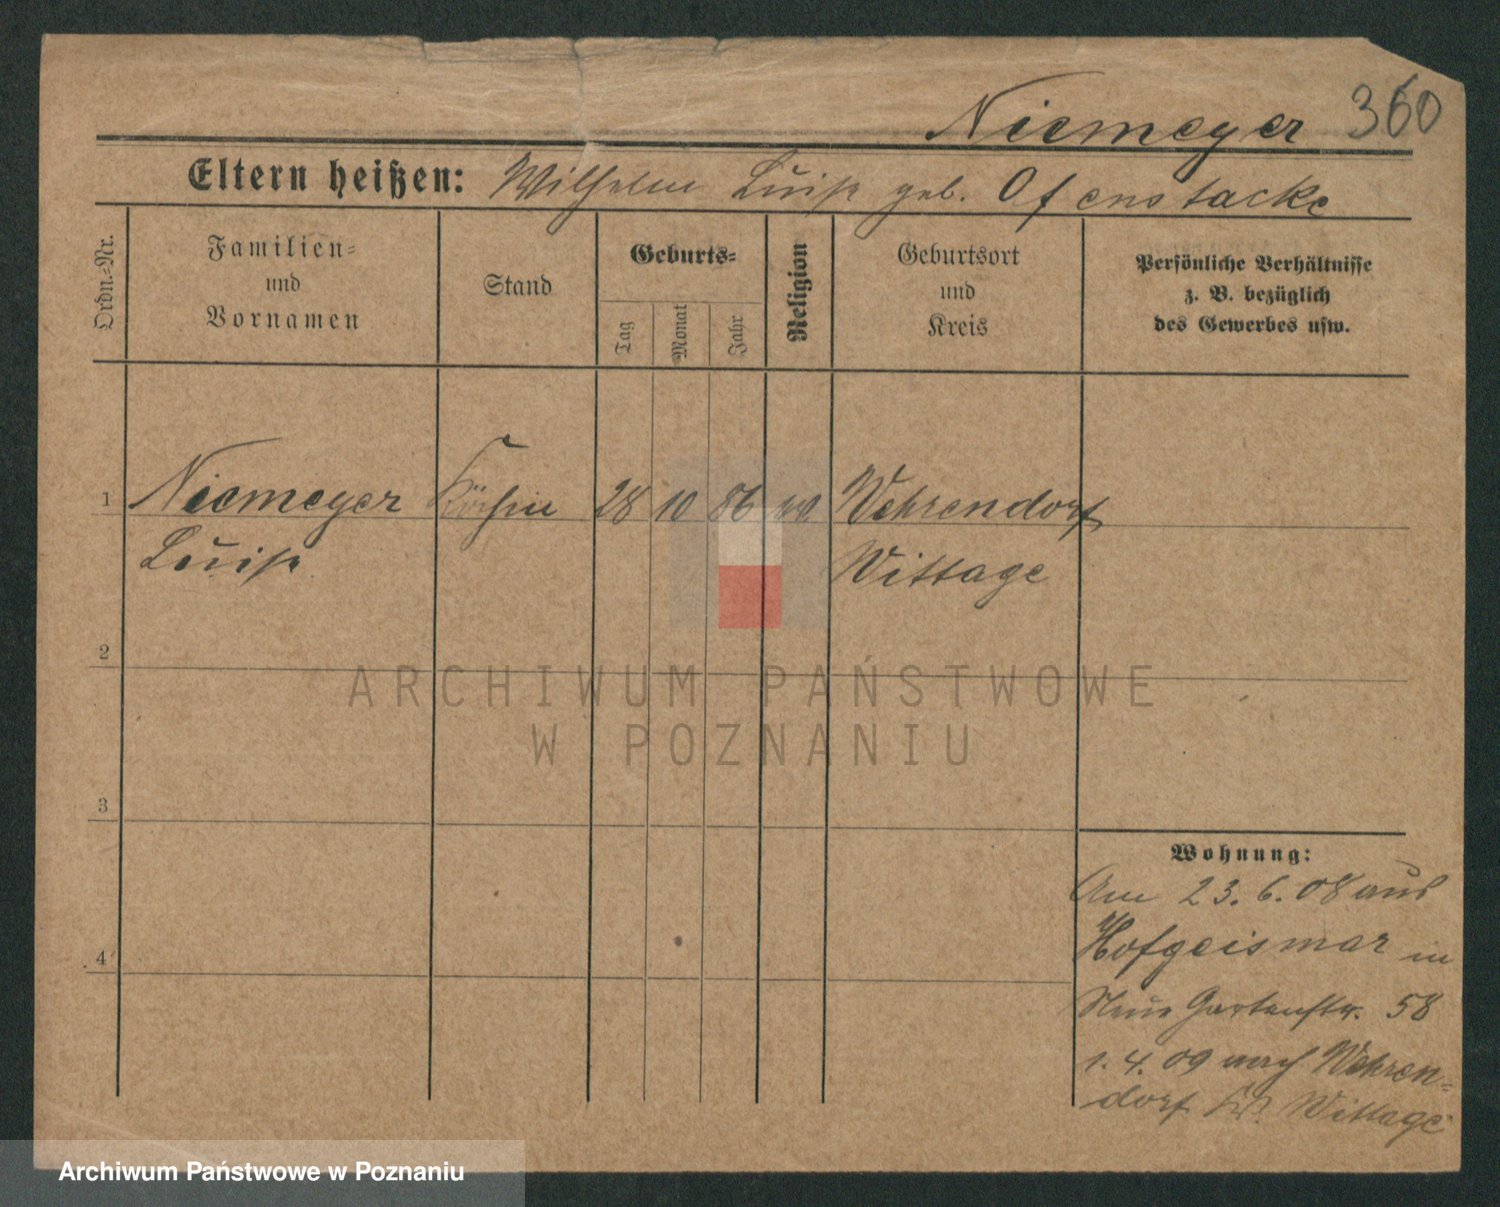 Niemeyer 360
Eltern heißen: Wilhelm Luise geb. Ofenstacke
Ordn.=Nr.
Familien=
und
Vornamen
Stand
Geburts=
Tag
Monat
Jahr
Religion
Geburtsort
und
Kreis
Persönliche Verhältnisse
z. B. bezüglich
des Gewerbes usw.
1 Niemeyer Köchin 28 10 86 ev. Wehrendorf
Luise Wittage
2
3
4
Wohnung:
Am 23. 6. 08 aus
Hofgeismar in
Neue Gartenstr. 58
1. 4. 09 nach Wehren=
dorf Kr. Wittage
ARCHIWUM PAŃSTWOWE
W POZNANIU
Archiwum Państwowe w Poznaniu